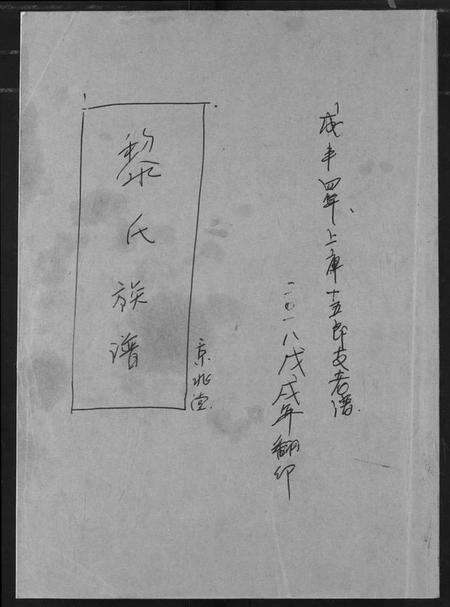 咸丰四年上库十五郎支老谱
二〇一八戊戌年翻印
黎氏族谱
京兆堂